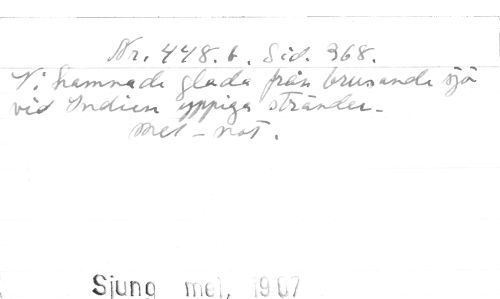 Nr. 448.b. Sid. 368.
Vi hamnade glada från brusande sjö
vid Indien yppiga stränder_
Mel-not.
Sjung mel, 1907